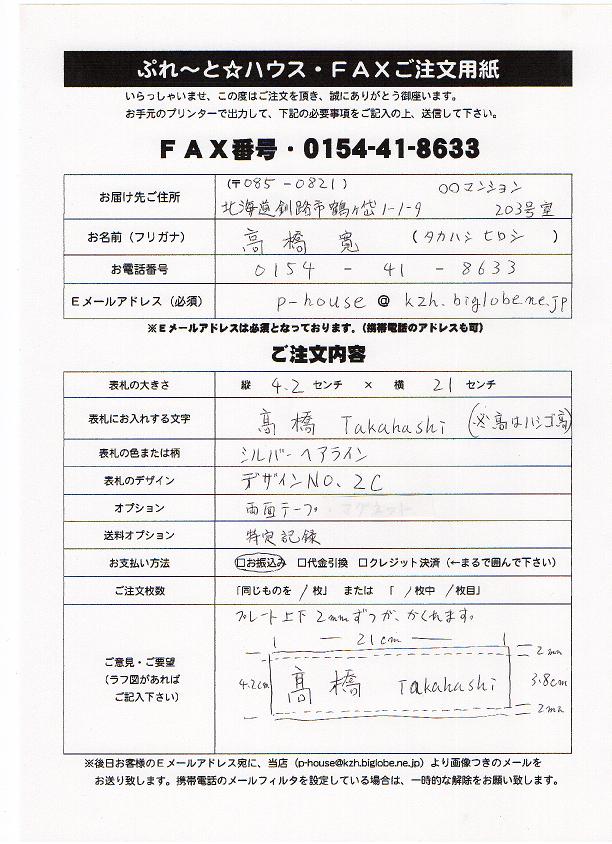 ぷれ～と☆ハウス・ＦＡＸご注文用紙
いらっしゃいませ、この度はご注文を頂き、誠にありがとう御座います。
お手元のプリンターで出力して、下記の必要事項をご記入の上、送信して下さい。
ＦＡＸ番号・0154-41-8633
お届け先ご住所 (〒085-0821) 〇〇マンション
北海道釧路市鶴ヶ岱1-1-9 203号室
お名前（フリガナ） 髙橋 寛 (タカハシ ヒロシ)
お電話番号 0154 - 41 - 8633
Ｅメールアドレス（必須） p-house @ kzh.biglobe.ne.jp
※Ｅメールアドレスは必須となっております。（携帯電話のアドレスも可）
ご注文内容
表札の大きさ 縦 4.2 センチ × 横 21 センチ
表札にお入れする文字 髙橋 Takahashi (※高はハシゴ髙)
表札の色または柄 シルバーヘアライン
表札のデザイン デザインNO. 2C
オプション 両面テープ・マグネット
送料オプション 特定記録
お支払い方法 □お振込み □代金引換 □クレジット決済（←まるで囲んで下さい）
ご注文枚数 「同じものを 1枚」 または 「 1枚中 1枚目」
ご意見・ご要望
（ラフ図があれば
ご記入下さい）
プレート上下2mmずつが、かくれます。
21cm
2mm
4.2cm 髙橋 Takahashi 3.8cm
2mm
※後日お客様のＥメールアドレス宛に、当店（p-house@kzh.biglobe.ne.jp）より画像つきのメールを
お送り致します。携帯電話のメールフィルタを設定している場合は、一時的な解除をお願い致します。